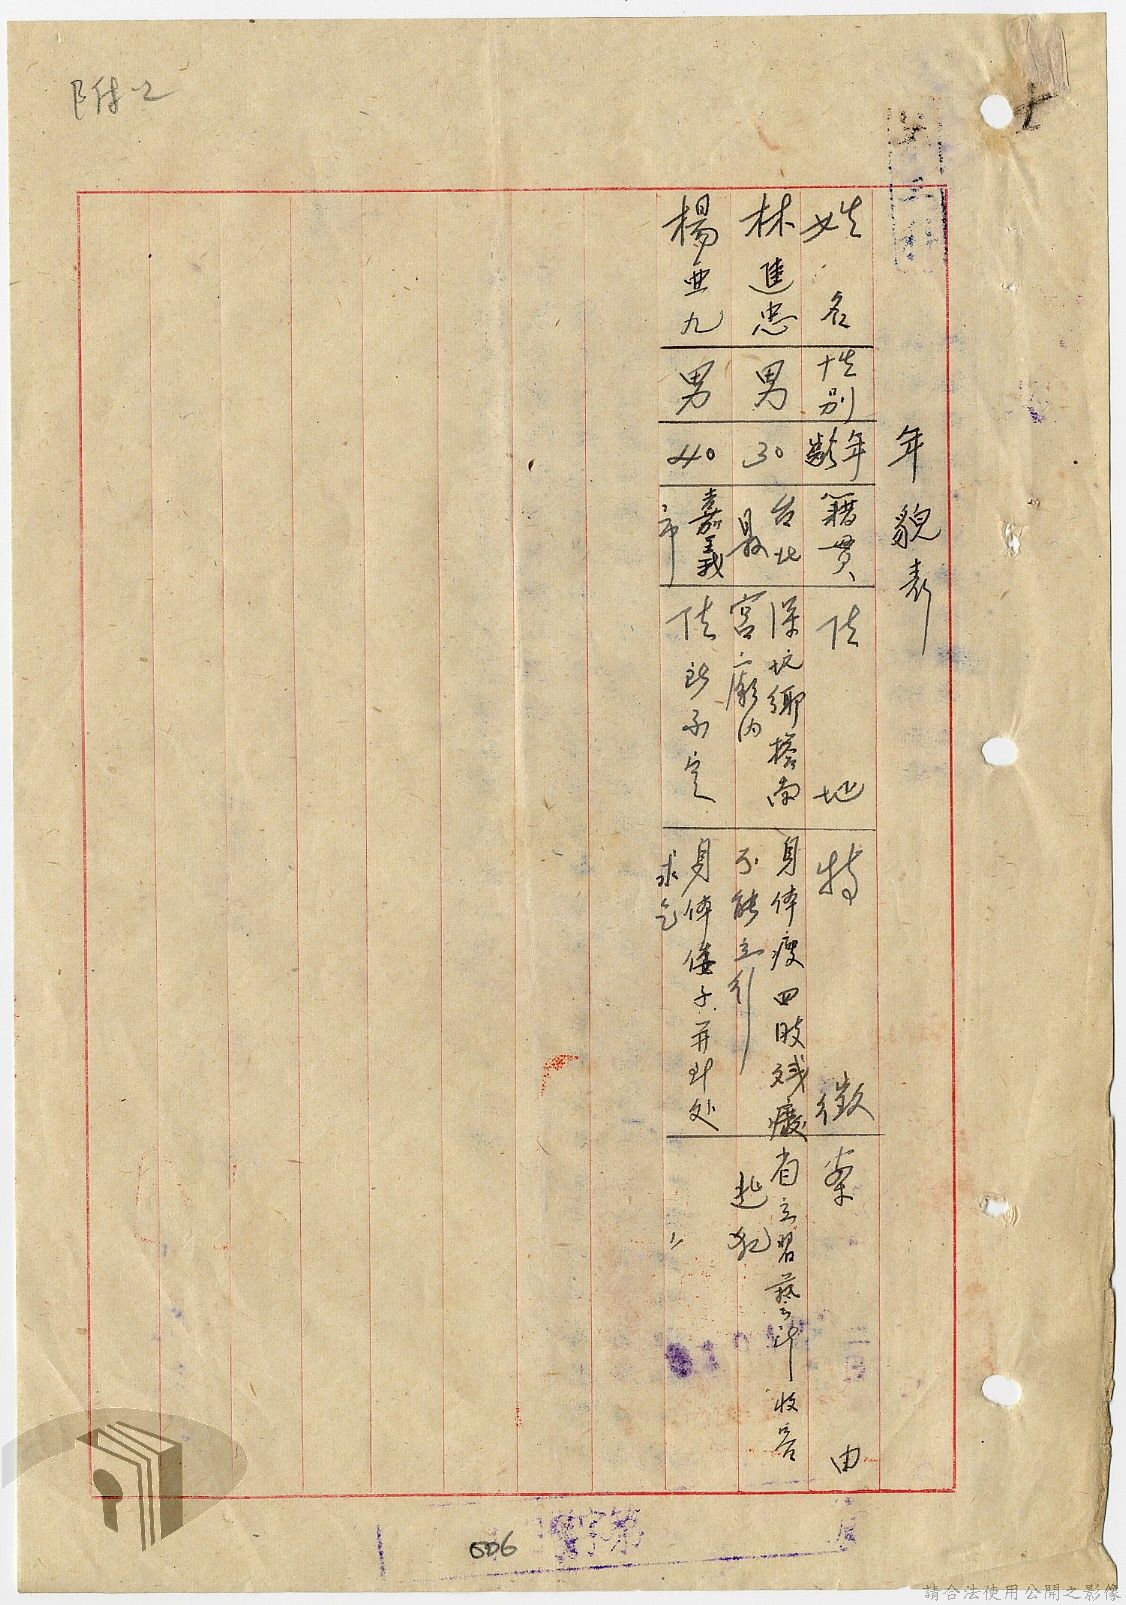 附-2
年貌表
姓名 性別 年齡 籍貫 住地 特徵 案由
林進忠 男 30 台北縣 深坑鄉 南宮廟內 身体瘦四肢残癈不能立行 省立習藝所收容逃犯
楊亜九 男 40 嘉義市 住所不定 身体倭子并到处求乞 〃
506
第 字
請合法使用公開之影像